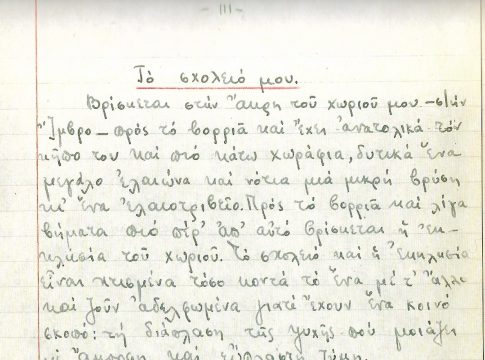 - III -
Τὸ σχολειό μου.
Βρίσκεται στὴν ἄκρη τοῦ χωριοῦ μου - στὴν
Ἴμβρο - πρὸς τὸ βορριᾶ καὶ ἔχει ἀνατολικὰ τὸν
κῆπο του καὶ πιὸ κάτω χωράφια, δυτικὰ ἕνα
μεγάλο ἐλαιώνα καὶ νότια μιὰ μικρὴ βρύση
κι' ἕνα ἐλαιοτριβεῖο. Πρὸς τὸ βορριᾶ καὶ λίγα
βήματα πιὸ πέρ' ἀπ' αὐτὸ βρίσκεται ἡ ἐκ-
κλησία τοῦ χωριοῦ. Τὸ σχολειὸ καὶ ἡ ἐκκλησία
εἶναι χτισμένα τόσο κοντὰ τὸ ἕνα μὲ τ' ἄλλο
καὶ ζοῦν ἀδελφωμένα γιατὶ ἔχουν ἕνα κοινὸ
σκοπό: τὴ διάπλαση τῆς ψυχῆς ποὺ μοιάζει
καὶ εὔπλαστη